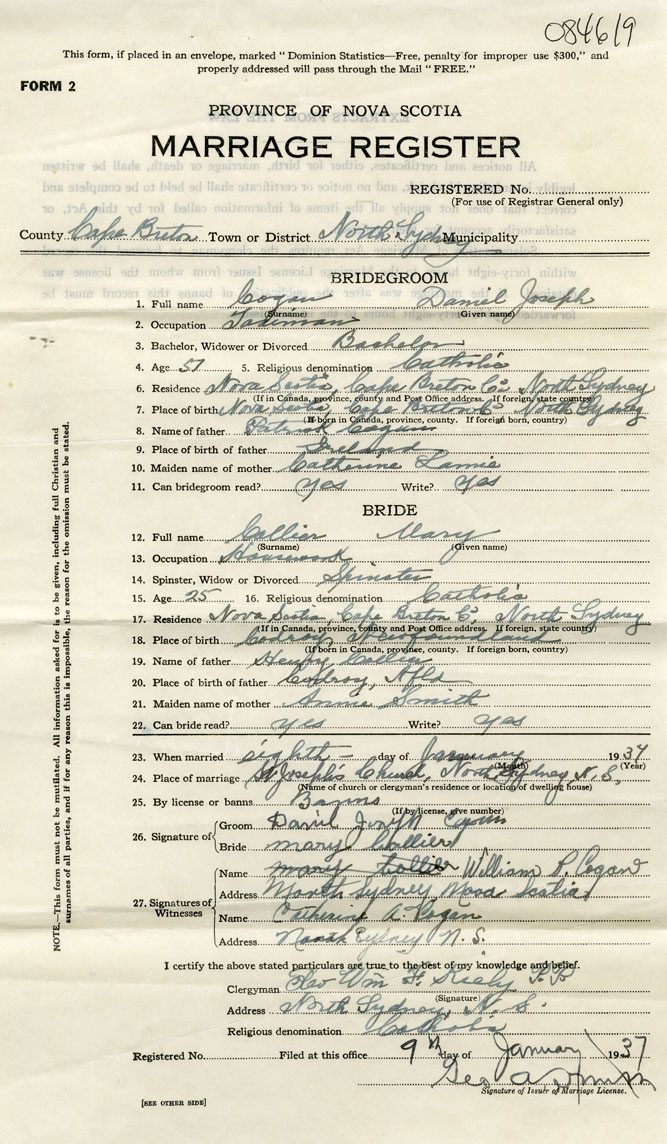 084619
This form, if placed in an envelope, marked "Dominion Statistics—Free, penalty for improper use $300," and
properly addressed will pass through the Mail "FREE."
FORM 2
PROVINCE OF NOVA SCOTIA
MARRIAGE REGISTER
REGISTERED No.
(For use of Registrar General only)
County Cape Breton Town or District North Sydney Municipality
BRIDEGROOM
1. Full name Cogan Daniel Joseph
(Surname) (Given name)
2. Occupation
3. Bachelor, Widower or Divorced Bachelor
4. Age 51 5. Religious denomination Catholic
6. Residence Nova Scotia, Cape Breton Co. North Sydney
(If in Canada, province, county and Post Office address. If foreign, state country)
7. Place of birth Nova Scotia, Cape Breton Co. North Sydney
(If born in Canada, province, county. If foreign born, country)
8. Name of father Patrick Cogan
9. Place of birth of father Ireland
10. Maiden name of mother Catherine
11. Can bridegroom read? Yes Write? Yes
BRIDE
12. Full name Collier Mary
(Surname) (Given name)
13. Occupation Housework
14. Spinster, Widow or Divorced Spinster
15. Age 25 16. Religious denomination Catholic
17. Residence Nova Scotia, Cape Breton Co. North Sydney
(If in Canada, province, county and Post Office address. If foreign, state country)
18. Place of birth Codroy, Newfoundland
(If born in Canada, province, county. If foreign born, country)
19. Name of father Henry Collier
20. Place of birth of father Codroy, Nfld
21. Maiden name of mother Annie Smith
22. Can bride read? yes Write? yes
23. When married eighth day of January 1937
(Month) (Year)
24. Place of marriage St Joseph's Church, North Sydney, N.S.
(Name of church or clergyman's residence or location of dwelling house)
25. By license or banns Banns
(If by license, give number)
26. Signature of
Groom Daniel Joseph Cogan
Bride Mary Collier
27. Signatures of Witnesses
Name mary Collier William P. Cogan
Address North Sydney Nova Scotia
Name Catherine A. Cogan
Address North Sydney N.S.
I certify the above stated particulars are true to the best of my knowledge and belief.
Clergyman Rev Wm F. Kiely P.P.
(Signature)
Address North Sydney, N.S.
Religious denomination Catholic
Registered No. Filed at this office 9th day of January 1937
Geo
Signature of Issuer of Marriage License.
[SEE OTHER SIDE]
NOTE.—This form must not be mutilated. All information asked for is to be given, including full Christian and
surnames of all parties, and if for any reason this is impossible, the reason for the omission must be stated.